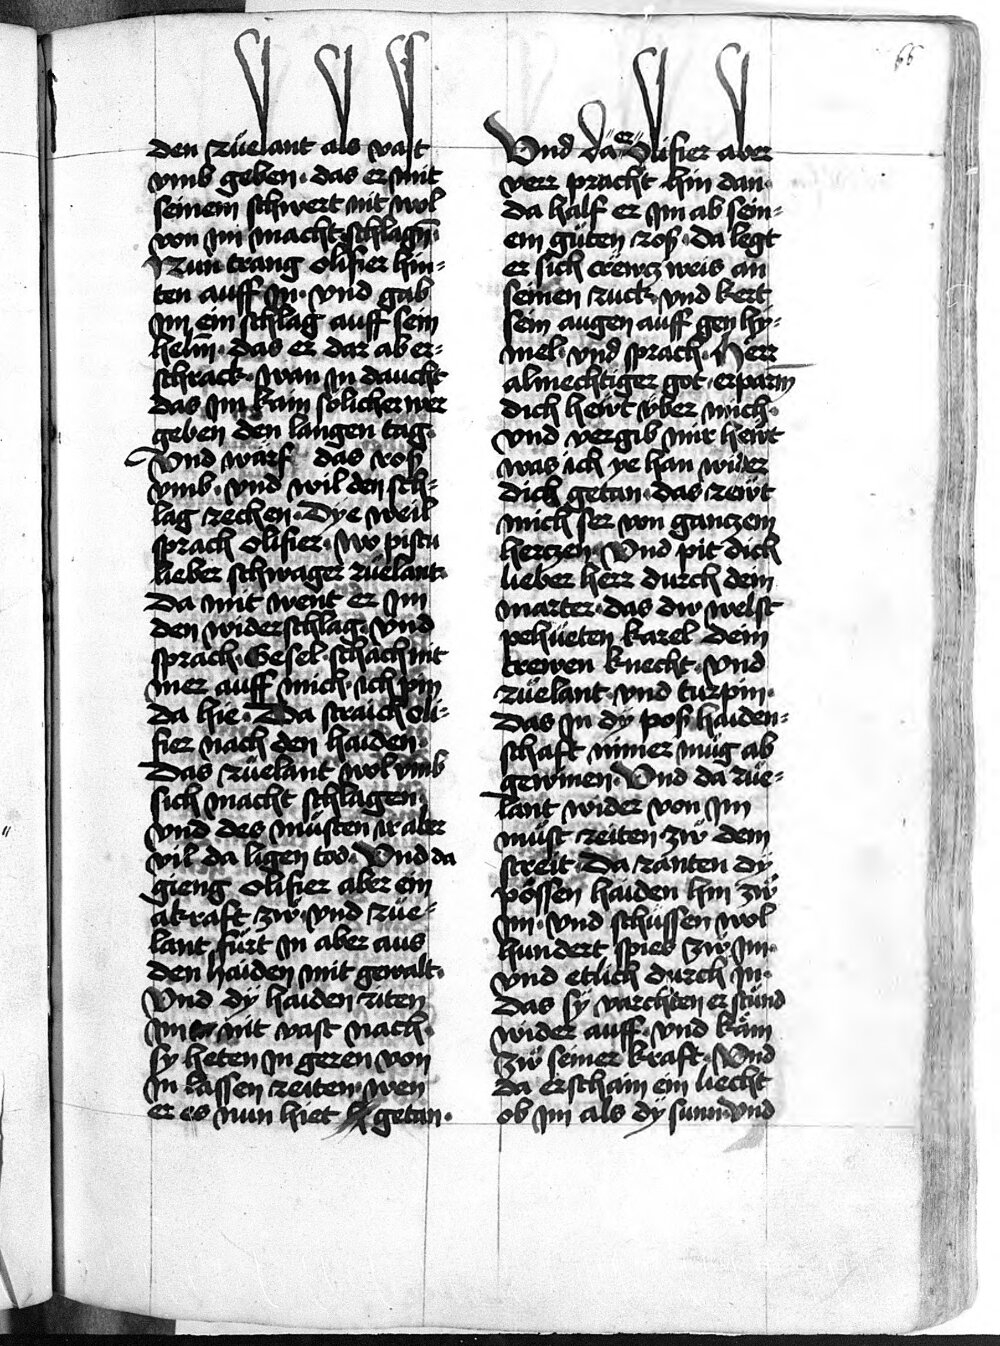 66
den rüelant als vast
vmb geben · das er mit
seinem schwert nit wol
von im macht schlagñ ·
Nun trang olifier hin=
ten auff in · vnd gab
im ein schlag auff sein
helm̄ · das er dar ab er=
schrack · wan in daucht
das im kain solicher wer
geben den langen tag ·
Vnd warf das roß
vmb · vnd wil den sch=
lag rechen · Dye weil
sprach olifier · wo pistu
lieber schwager rüelant ·
Da mit went er im
den widerschlag · vnd
sprach · Gesel · schlach nit
mer auff mich · ich pin
da hie · Da straich oli=
fier nach den haiden ·
Das rüelant wol vmb
sich macht schlagen ·
vnd des müsten ir aber
vil da ligen tod · Vnd da
gieng olifier aber ein
akraft zw · vnd rüe=
lant fürt in aber aus
den haiden mit gewalt ·
Vnd dÿ haiden riten
im nit vast nach ·
sy heten in geren von
in lassen reiten · wen
er es nun hiet getan ·
Vnd da er olifier aber
verr pracht hin dan ·
da half er im ab sein=
em gůten roß · da legt
er sich crëwcz weis an
seinen ruck · vnd kert
sein augen auff gen hy=
mel · vnd sprach · Herr
almechtiger got · erparm
dich hewt vber mich ·
vnd vergib mir hewt
was ich ye han wider
dich getan · das rewt
mich ser von ganczem
herczen · Vnd pit dich
lieber herr durch dein
marter · das dw welst
pehüeten karel dein
trewen knecht · vnd
rüelant · vnd turpin ·
Das in dÿ poß haiden=
schaft nimer müg ab
gewinen · Vnd da rüe=
lant wider von im
můst reiten zẅ dem
streit · Da ranten dÿ
pössen haiden hin zẅ
im · vnd schussen wol
hundert spies zẅ im ·
vnd etlich durch in ·
Das sÿ varchten er stünd
wider auff · vnd käm
zẅ seiner kraft · Vnd
da erschain ein liecht
ob im als dÿ sunn · vnd